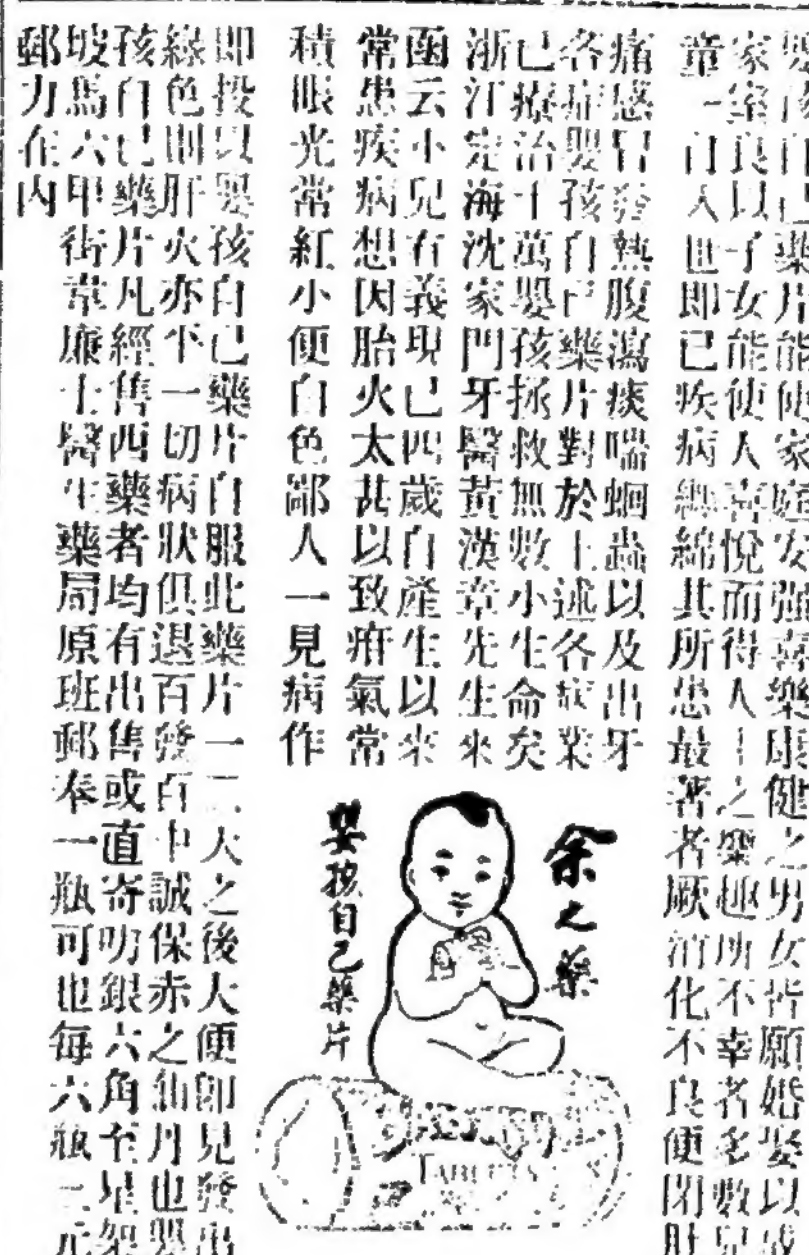 嬰孩自己藥片能使家庭安强喜樂康健之男女皆願婚娶以成
家室良以子女能使人喜悅而得人生之樂趣所不幸者多數兒
童一自入世即已疾病纏綿其所患最著者厥消化不良便閉肚
痛感冒發熱腹瀉痰喘蛔蟲以及出牙
各症嬰孩自己藥片對於上述各症業
已療治十萬嬰孩拯救無數小生命矣
浙江定海沈家門牙醫黃漢章先生來
函云小兒有義現已四歲自產生以來
常患疾病想因胎火太甚以致疳氣常
積眼光常紅小便白色鄙人一見病作
余之藥
嬰孩自己藥片
TABLETS
即投以嬰孩自己藥片自服此藥片一二天之後大便即見發出
綠色則肝火亦平一切病狀俱退百發百中誠保赤之仙丹也嬰
孩自己藥片凡經售西藥者均有出售或直寄叻銀六角至星架
坡馬六甲街韋廉士醫生藥局原班郵奉一瓶可也每六瓶三元
郵力在內